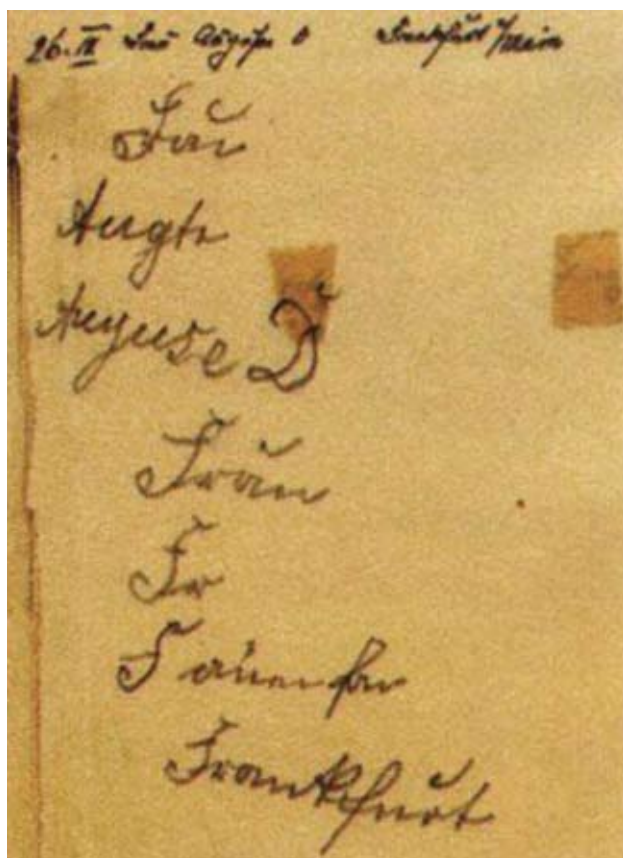 26. IX Frau Auguste D Frankfurt /Main
Fau
Augte
Auguse D
Fraün
Fr
Frankfurt